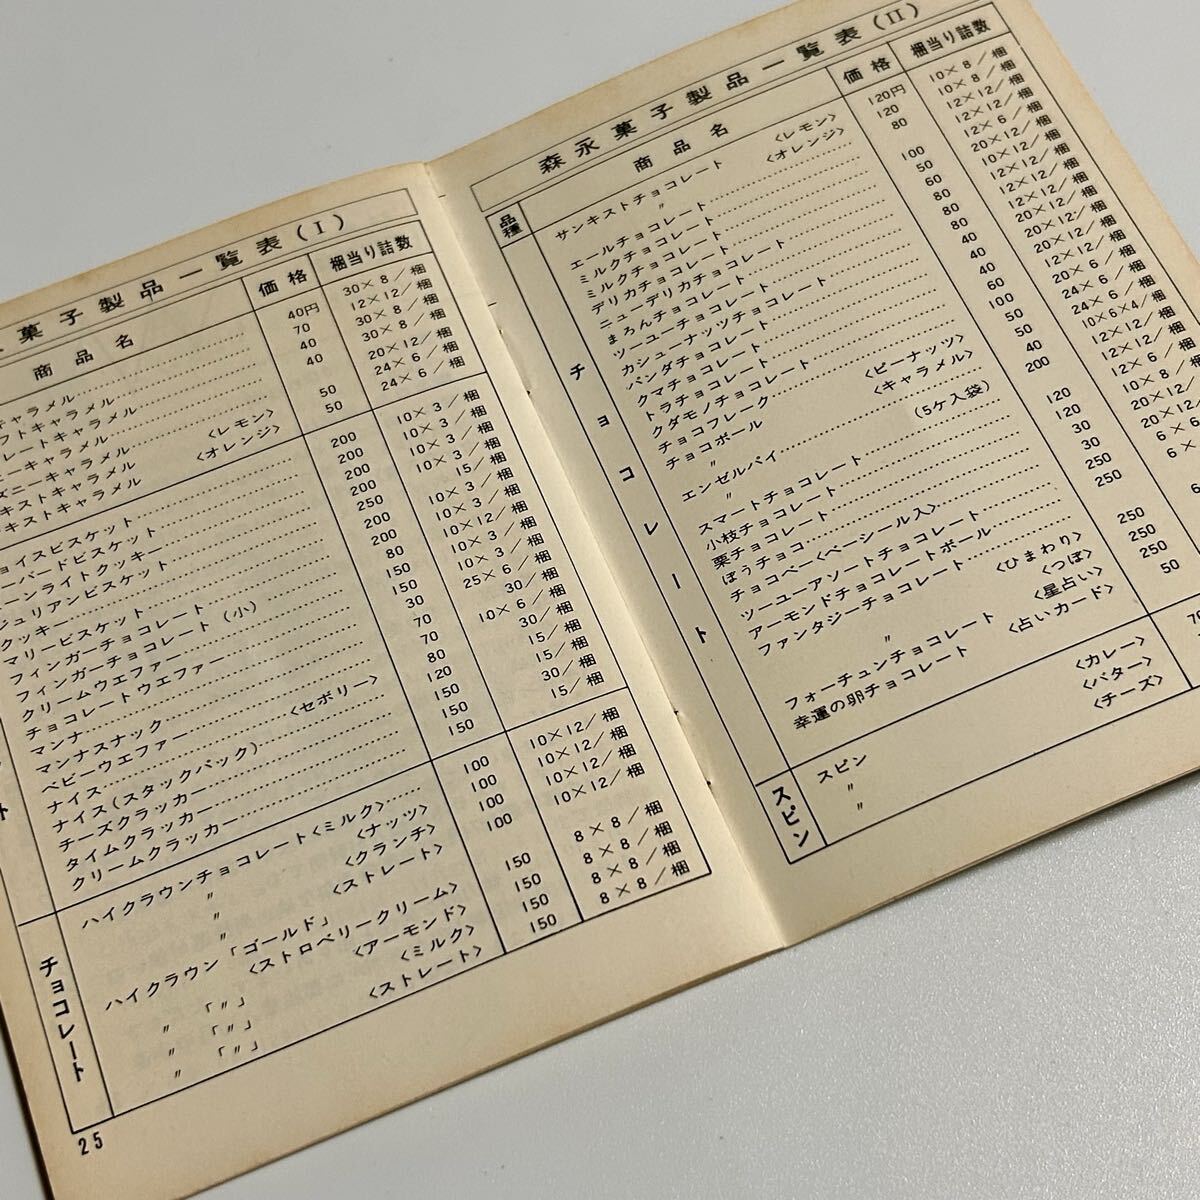 菓子製品一覧表(I)
商品名 価格 梱当り詰数
キャラメル 40円 30×8/梱
フトキャラメル 70 12×12/梱
レートキャラメル 40 30×8/梱
ニーキャラメル 40 30×8/梱
ズニーキャラメル 20×12/梱
キストキャラメル <レモン> 50 24×6/梱
キストキャラメル <オレンジ> 50 24×6/梱
ョイスビスケット 200 10×3/梱
ーバードビスケット 200 10×3/梱
ーンライトクッキー 200 10×3/梱
ジュリアンビスケット 250 10×3/梱
クッキー 200 15/梱
マリービスケット 80
フィンガーチョコレート 150
フィンガーチョコレート(小) 30
クリームウエファー 70
チョコレートウエファー 70
マンナ 80
マンナスナック 120
ベビーウエファー <セボリー> 150
ナイス 150
ナイス(スタックパック) 150
チーズクラッカー
タイムクラッカー
クリームクラッカー
チョコレート
ハイクラウンチョコレート<ミルク> 100 10×12/梱
〃 <ナッツ> 100 10×12/梱
〃 <クランチ> 100 10×12/梱
〃 <ストレート> 100 10×12/梱
ハイクラウン「ゴールド」 <ストロベリークリーム> 150 8×8/梱
〃 「〃」 <アーモンド> 150 8×8/梱
〃 「〃」 <ミルク> 150 8×8/梱
〃 「〃」 <ストレート> 150 8×8/梱
25
森永菓子製品一覧表(II)
品種 商品名 価格 梱当り詰数
チョコレート
サンキストチョコレート <レモン> 120円 10×8/梱
〃 <オレンジ> 120 10×8/梱
エールチョコレート 80 12×12/梱
ミルクチョコレート 100 12×12/梱
ミルクチョコレート 50 12×6/梱
デリカチョコレート 60 20×12/梱
ニューデリカチョコレート 80 10×12/梱
まろんチョコレート 80 12×12/梱
ツーユーチョコレート 40 12×12/梱
カシューナッツチョコレート 60 12×12/梱
パンダチョコレート 40 20×12/梱
クマチョコレート 40 20×12/梱
トラチョコレート 40 20×12/梱
クダモノチョコレート 60
チョコフレーク 100
チョコボール <ピーナッツ> 50 24×6/梱
〃 <キャラメル> 50 24×6/梱
エンゼルパイ 40 10×6×4/梱
〃 (5ケ入袋) 200
スマートチョコレート 120
小枝チョコレート 120
栗チョコレート 30
ぼうチョコ 30
チョコベー<ベーシール入> 250
ツーユーアソートチョコレート 250
アーモンドチョコレートボール
ファンタジーチョコレート <ひまわり> 250
〃 <つぼ> 250
フォーチュンチョコレート <星占い> 250
幸運の卵チョコレート <占いカード> 50
スピン
スピン <カレー>
〃 <バター>
〃 <チーズ>